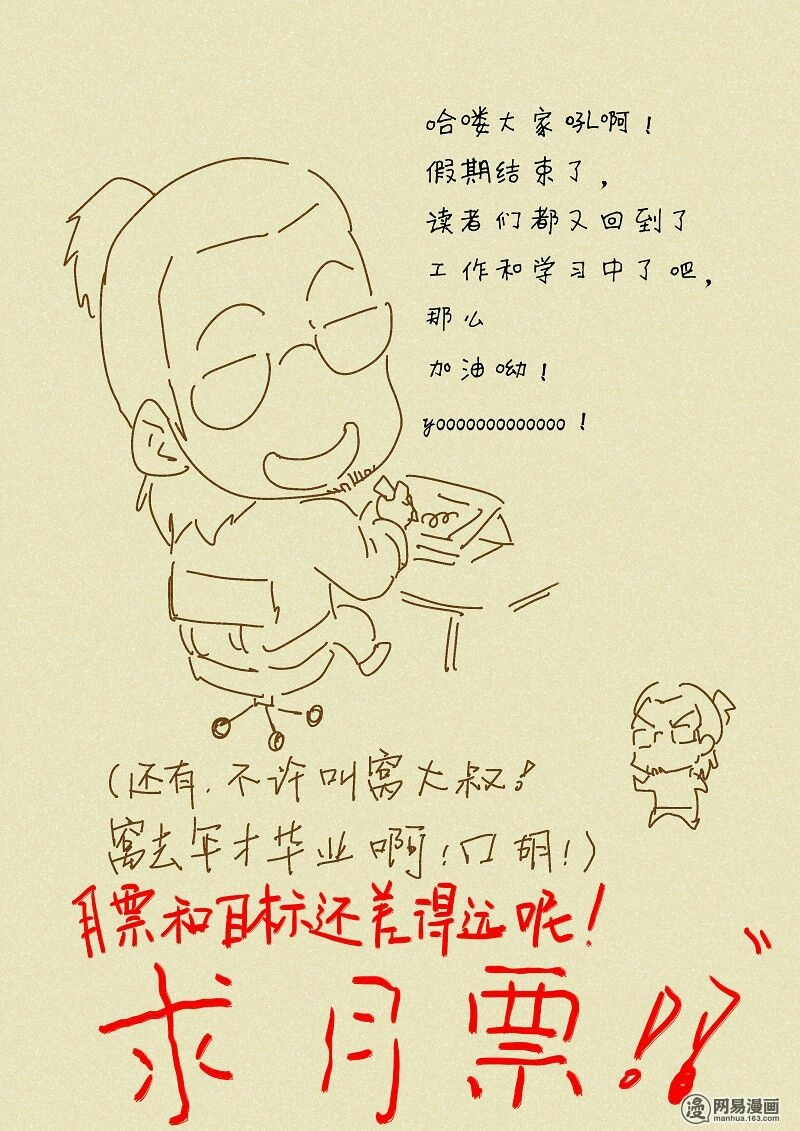 哈喽大家吼啊！
假期结束了，
读者们都又回到了
工作和学习中了吧，
那么
加油呦！
yooooooooooooo！
（还有，不许叫窝大叔！
窝去年才毕业啊！口胡！）
月票和目标还差得远呢！
求月票！！
漫 网易漫画
manhua.163.com